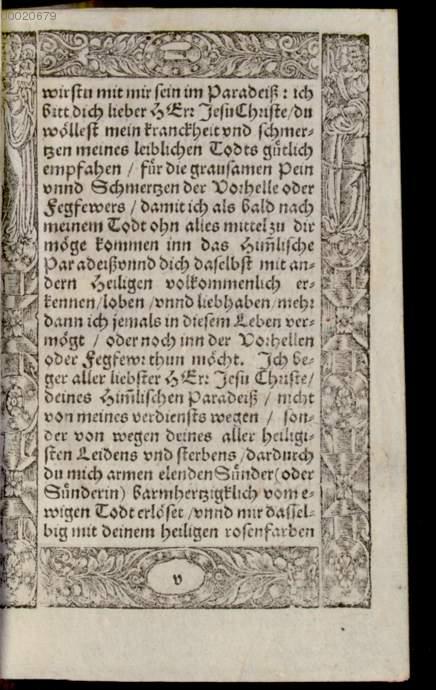 00020679
wirstu mit mir sein im Paradeiß : ich
bitt dich lieber HErr Jesu Christe/du
wöllest mein kranckheit vnd schmer-
tzen meines leiblichen Todts gütlich
empfahen / für die grausamen Pein
vnnd Schmertzen der Vorhelle oder
Fegfewers / damit ich als bald nach
meinem Todt ohn alles mittel zu dir
möge kommen inn das Him̃lische
Paradeiß vnnd dich daselbst mit an-
dern Heiligen volkommenlich er-
kennen/loben /vnnd liebhaben/mehr
dann ich jemals in diesem Leben ver-
mögt / oder noch inn der Vorhellen
oder Fegfewr thun möcht. Ich be-
ger aller liebster HErr Jesu Christe/
deines Him̃lischen Paradeiß / nicht
von meines verdiensts wegen / son-
der von wegen deines aller heiligi-
sten Leidens vnd sterbens /dardurch
du mich armen elenden Sünder (oder
Sünderin) barmhertzigklich vom e-
wigen Todt erlöset /vnnd mir dassel-
big mit deinem heiligen rosenfarben
v